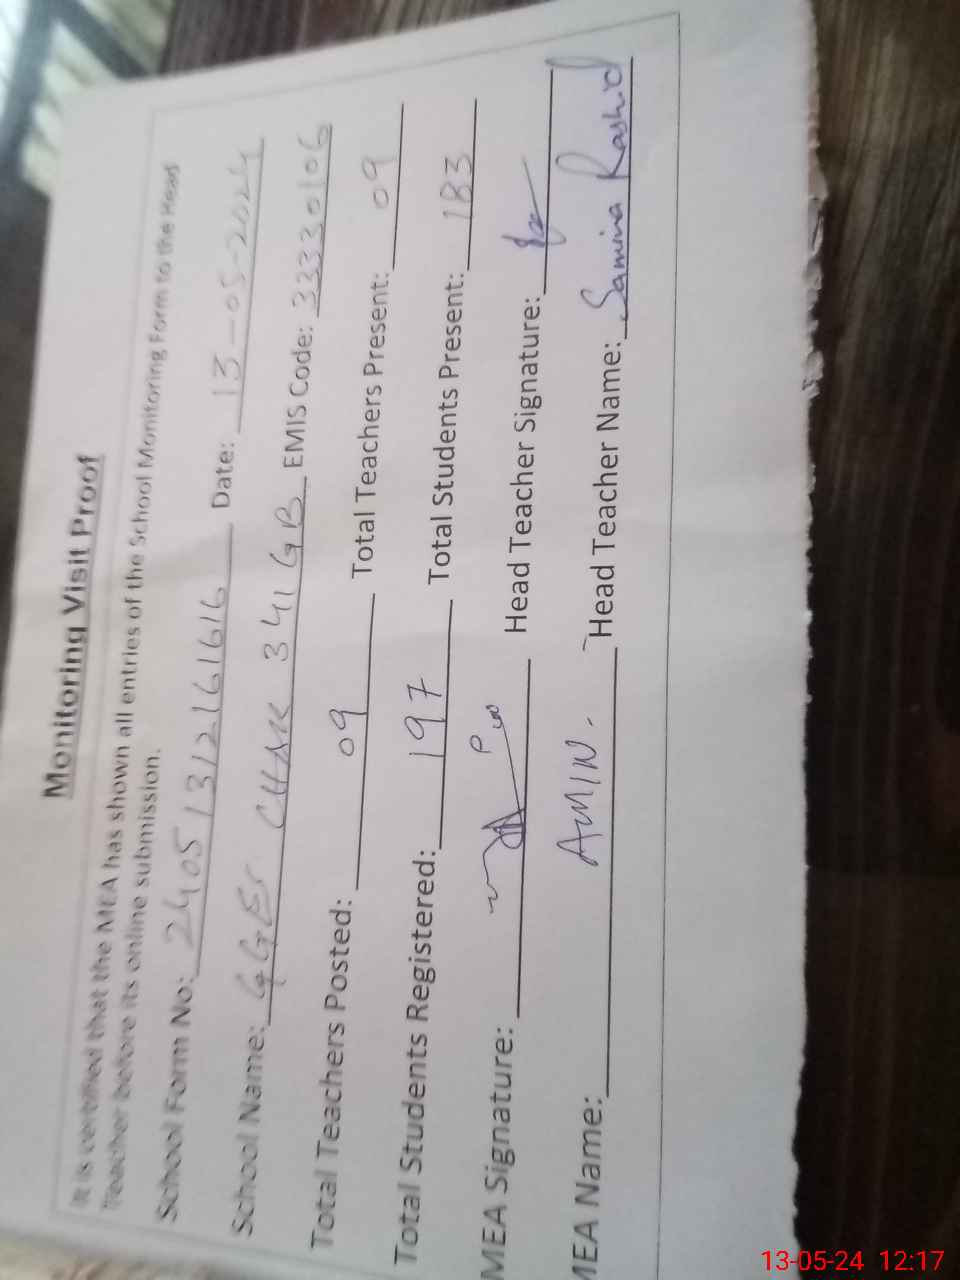 Monitoring Visit Proof
It is certified that the MEA has shown all entries of the School Monitoring Form to the Head
Teacher before its online submission.
School Form No: 240513121616 Date: 13-05-2024
School Name: GGES CHAK 341 GB EMIS Code: 33330106
Total Teachers Posted: 09 Total Teachers Present: 09
Total Students Registered: 197 Total Students Present: 183
MEA Signature: Head Teacher Signature:
MEA Name: AMIN. Head Teacher Name: Samina Rashid
13-05-24 12:17